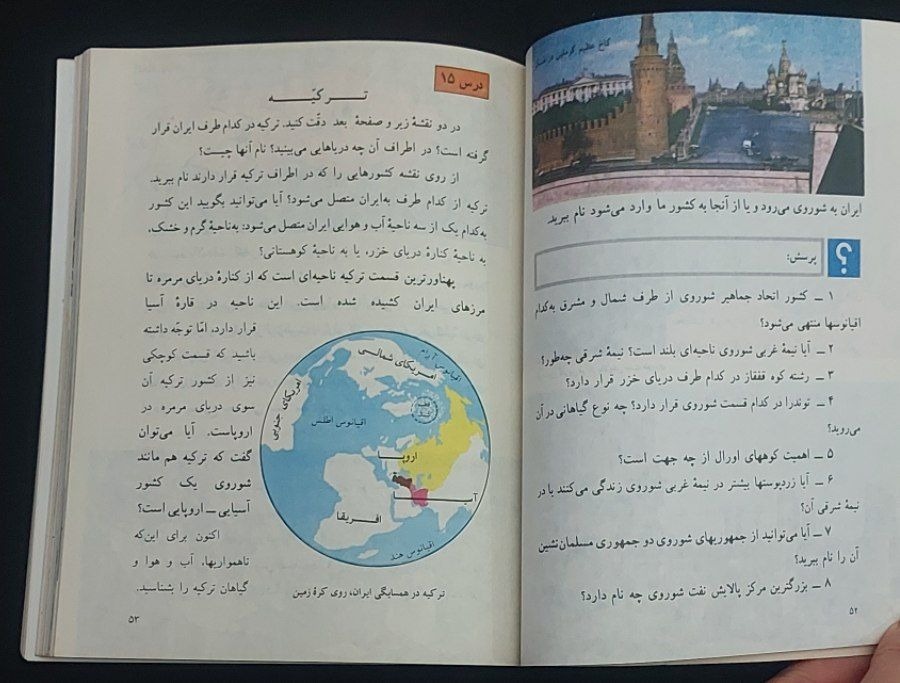 کاخ عظیم کرملین در
ایران به شوروی می‌رود و یا از آنجا به کشور ما وارد می‌شود نام ببرید.
؟
پرسش:
۱ ــ کشور اتحاد جماهیر شوروی از طرف شمال و مشرق به‌کدام
اقیانوسها منتهی می‌شود؟
۲ ــ آیا نیمهٔ غربی شوروی ناحیه‌ای بلند است؟ نیمهٔ شرقی چه‌طور؟
۳ ــ رشته کوه قفقاز در کدام طرف دریای خزر قرار دارد؟
۴ ــ توندرا در کدام قسمت شوروی قرار دارد؟ چه نوع گیاهانی در آن
می‌روید؟
۵ ــ اهمیت کوههای اورال از چه جهت است؟
۶ ــ آیا زردپوستها بیشتر در نیمهٔ غربی شوروی زندگی می‌کنند یا در
نیمهٔ شرقی آن؟
۷ ــ آیا می‌توانید از جمهوریهای شوروی دو جمهوری مسلمان‌نشین
آن را نام ببرید؟
۸ ــ بزرگترین مرکز پالایش نفت شوروی چه نام دارد؟
۵۲
درس ۱۵
ترکیّه
در دو نقشهٔ زیر و صفحهٔ بعد دقّت کنید. ترکیه در کدام طرف ایران قرار
گرفته است؟ در اطراف آن چه دریاهایی می‌بینید؟ نام آنها چیست؟
از روی نقشه کشورهایی را که در اطراف ترکیه قرار دارند نام ببرید.
ترکیه از کدام طرف به‌ایران متصل می‌شود؟ آیا می‌توانید بگویید این کشور
به‌کدام یک از سه ناحیهٔ آب و هوایی ایران متصل می‌شود: به‌ناحیهٔ گرم و خشک،
به ناحیهٔ کنارهٔ دریای خزر، یا به ناحیهٔ کوهستانی؟
پهناورترین قسمت ترکیه ناحیه‌ای است که از کنارهٔ دریای مرمره تا
مرزهای ایران کشیده شده است. این ناحیه در قارهٔ آسیا
قرار دارد، امّا توجّه داشته
باشید که قسمت کوچکی
نیز از کشور ترکیه آن
سوی دریای مرمره در
اروپاست. آیا می‌توان
گفت که ترکیه هم مانند
شوروی یک کشور
آسیایی ــ اروپایی است؟
اکنون برای این‌که
ناهمواریها، آب و هوا و
گیاهان ترکیه را بشناسید.
اقیانوس آرام
امریکای شمالی
امریکای جنوبی
قطب
شمال
اقیانوس اطلس
اروپا
آسیا
افریقا
اقیانوس هند
ترکیه در همسایگی ایران، روی کرهٔ زمین
۵۳